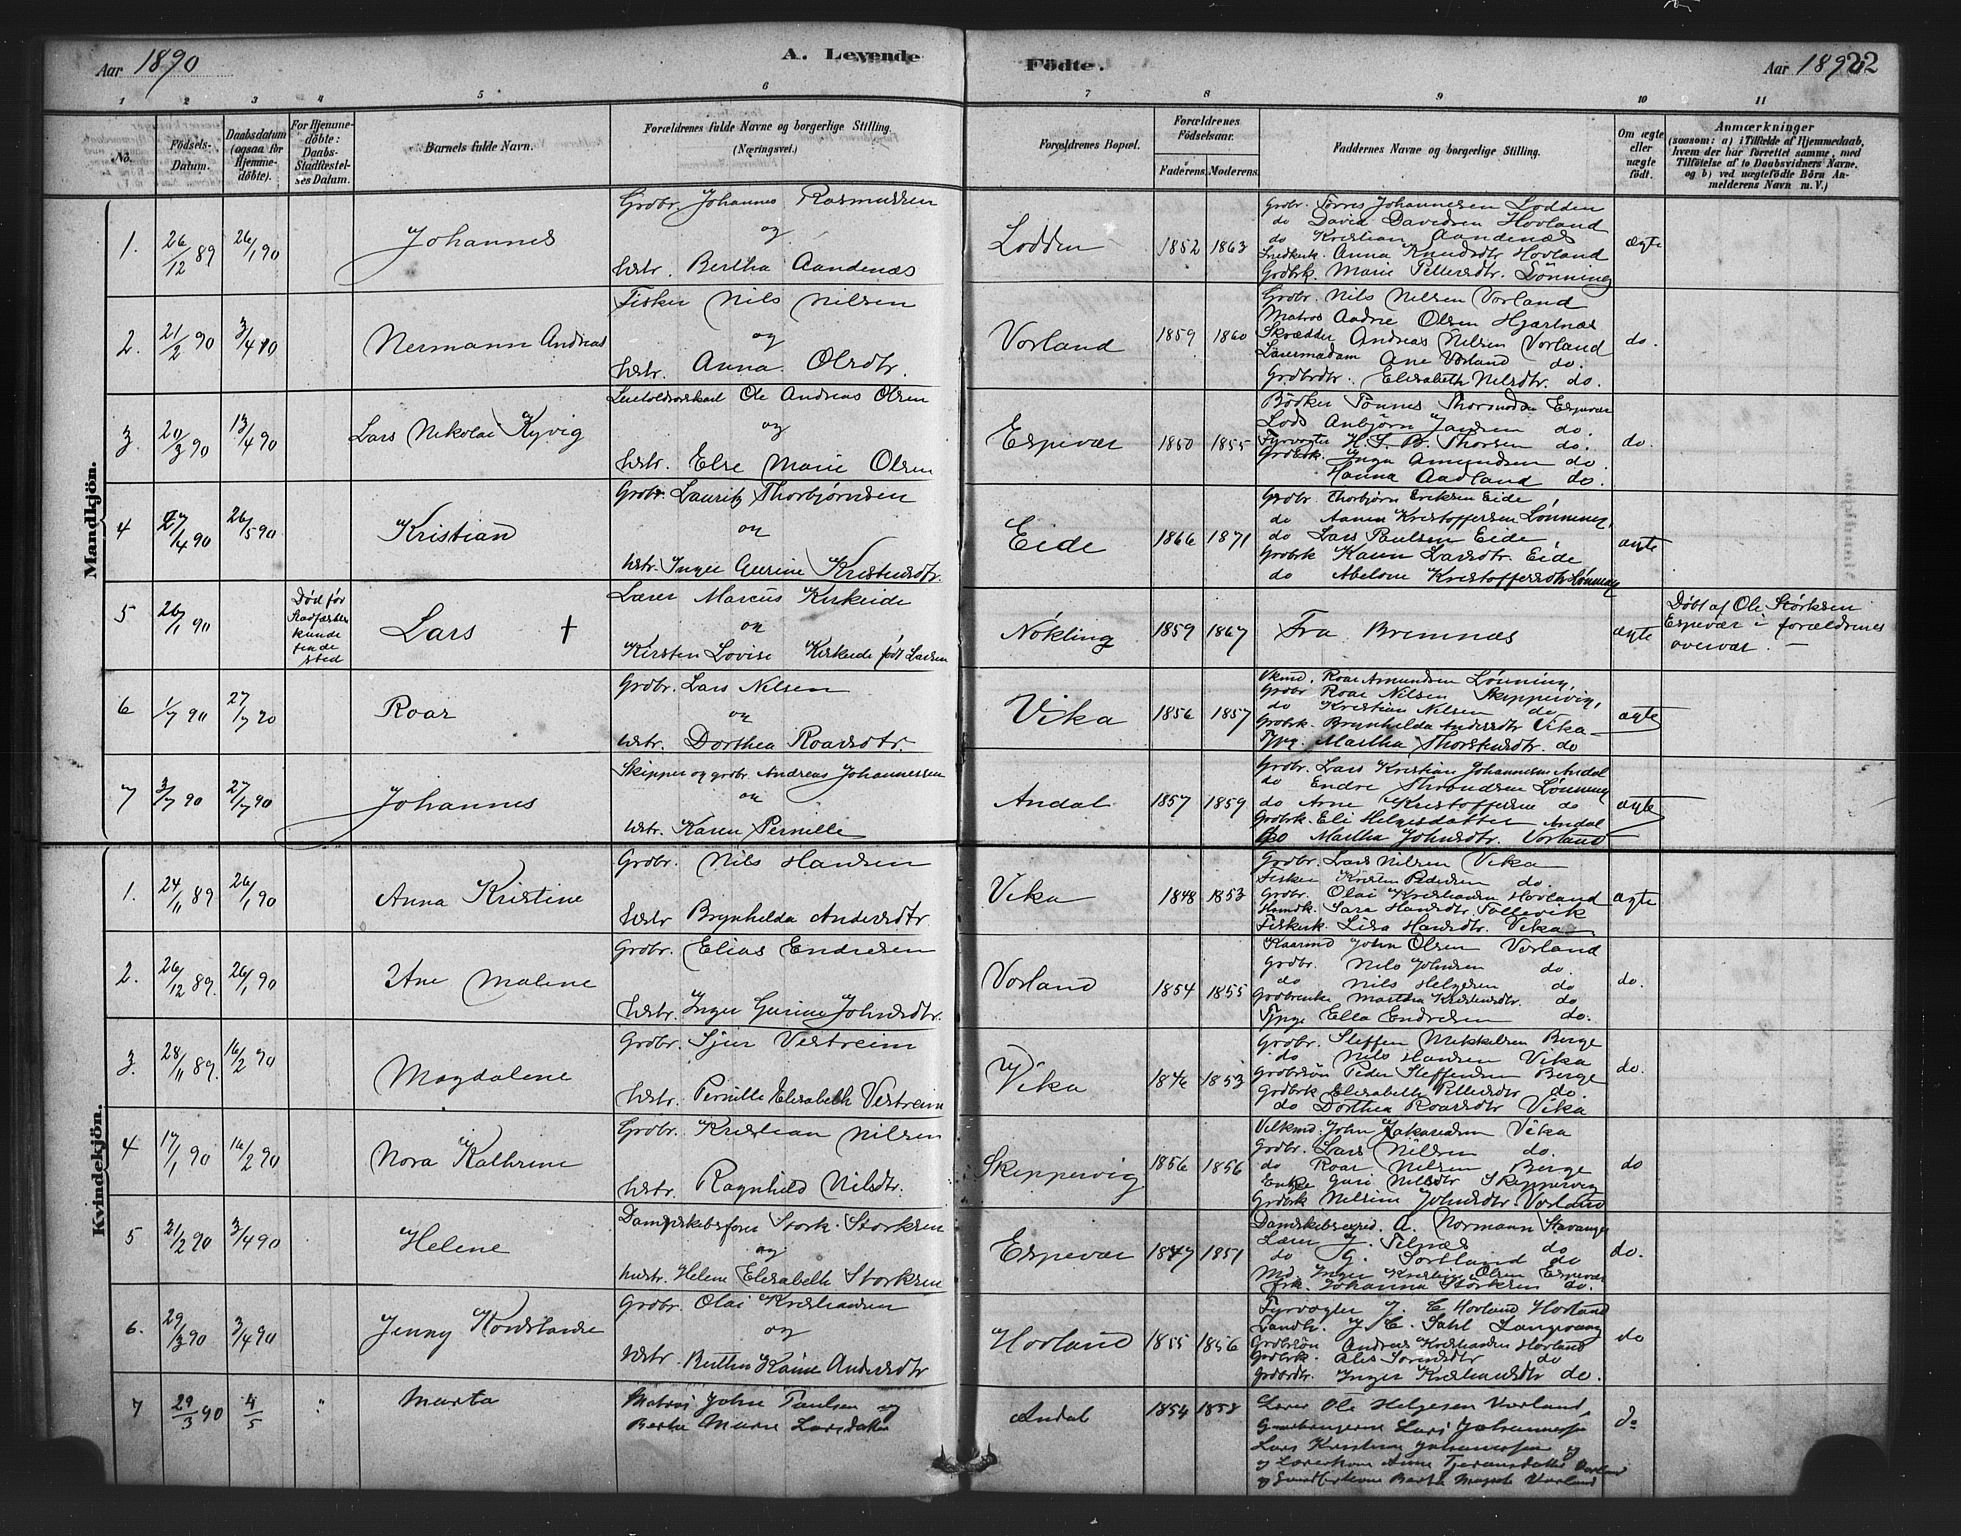 Aar 1890
A. Levende
Födte.
Aar 1890
22
1 2 3 4 5 6 7 8 9 10 11
No.
Födsels-
Datum.
Daabsdatum
(ogsaa for
Hjemme-
döbte).
For Hjemme-
döbte:
Daabs-
Stadfæstel-
ses Datum.
Barnets fulde Navn.
Forældrenes fulde Navne og borgerlige Stilling.
(Næringsvei.)
Forældrenes Bopæl.
Forældrenes
Födselsaar.
Faderens. Moderens.
Faddernes Navne og borgerlige Stilling.
Om ægte
eller
uægte
födt.
Anmærkninger
(saasom: a) i Tilfælde af Hjemmedaab,
hvem der har forrettet samme, med
Tilföielse af to Daabsvidners Navne.
og b) ved uægtefödte Börn An-
melderens Navn m. V.)
Mandkjön.
1. 26/12 89 26/1 90 Johannes
Grdbr. Johannes Rasmussen
og
hstr. Bertha Aandenæs
Lodden 1852 1863
Grdbr. Torres Johannesen Lodden
do David Davidsen Hovland
do Kristian Aandenæs
Anna Knudsdtr Hovland
Grdbrk. Marie Pettersdtr. Lönning
ægte
2. 21/2 90 3/4 90 Nermann Andreas
Fisker Nils Nilsen
og
hstr. Anna Olsdtr.
Vorland 1859 1860
Grdbr. Nils Nilsen Vorland
Matros Aadne Olsen Hjartnæs
Skrædder Andreas Nilsen Vorland
Lærermadam Ane Vorland do.
Grdbrdtr. Elisabeth Nilsdtr. do.
do.
3. 20/3 90 13/4 90 Lars Nikolai Kyvig
Ole Andreas Olsen
og
hstr. Else Marie Olsen
Espevær 1850 1855
Bödker Tönnes Thormodsen Espevær
Lods Anbjörn Jansen do.
Fyrvogter H. S. B. Thorsen do.
Grdbrk. Inga Amundsen do.
Hanna Aadland do.
do.
4 27/4 90 26/5 90 Kristian
Grdbr. Lauritz Thorbjørnsen
og
hstr. Inger Gurine Kristensdtr.
Eide 1866 1871
Grdbr. Thorbjørn Eriksen Eide
do Aamen Kristoffersen Lønning,
do Lars Paulsen Eide
Grdbrk Karen Larsdtr. Eide
do Abelone Kristoffersdtr Lønning
ægte
5 26/1 90
Død før
Stadfæstel
kunde
finde
sted
Lars +
Lærer Marcus Kirkeide
og
Kirsten Lovise Kirkeide født Larsen
Nøkling 1859 1867 Fra Bremnæs ægte
Døbt af Ole Størksen
Espevær i forældrenes
overvær. —
6 1/7 90 27/7 90 Roar
Grdbr. Lars Nilsen
og
hstr. Dorthea Roarsdtr.
Vika 1856 1857
Roar Amundsen Lønning,
Grdbr Roar Nilsen Skippervig,
do Kristian Nilsen do
Grdbrk. Brynhelda Andersdtr Vika
Martha Thorstensdtr. do
ægte
7 3/7 90 27/7 90 Johannes
Skipper og grdbr. Andreas Johannessen
og
hstr. Karen Pernille
Andal 1857 1859
Grdbr. Lars Kristian Johannesen Andal
do Endre Throndsen Lønning
do Arne Kristoffersen do
Grdbrk. Eli Helgesdatter Andal
do Martha Johnsdtr. Vorland
ægte
Kvindekjön.
1. 24/11 89 26/1 90 Anna Kristine
Grdbr. Nils Hansen
hstr Brynhelda Andersdtr.
Vika 1848 1853
Grdbr. Lars Nilsen Vika
Fisker Kristen Pedersen do.
Grdbr. Olai Kristiansen Hovland
Sara Hansdtr. Tollevik
Fiskerk. Lisa Hansdtr. Vika
ægte
2. 26/12 89. 26/1 90 Ane Malene
Grdbr. Elias Endresen
hstr. Inger Gurine Johnsdtr.
Vorland 1854 1855
Kaarmd John Olsen Vorland
Grdbr. Nils Johnsen do.
do Nils Helgesen do
Grdbrenke Martha Kristensdtr. do
Ella Endresen do.
do.
3. 28/11 89. 16/2 90 Magdalene
Grdbr. Sjur Vestreim
hstr. Pernille Elisabeth Vestreim
Vika 1846 1853
Grdbr. Steffen Mikkelsen Berge
do Nils Hansen Vika
Grdbrsön Peder Steffensen Berge
Grdbrk Elisabeth Pettersdtr do.
do Dorthea Roarsdtr Vika
do.
4 17/1 90 16/2 90 Nora Kathrine
Grdbr. Kristian Nilsen
hstr. Ragnhild Nilsdtr.
Skippervig 1856 1856
John Zakariasen Vika
Grdbr. Lars Nilsen do.
do Roar Nilsen Berge
Enke Guri Nilsdtr Skippervig
Grdbrk Nilsine Johnsdtr Vorland
do
5 21/2 90 3/4 90 Helene
Dampskibsfører Stork Storksen
og
hustr. Helene Elisabeth Storksen
Espevær 1847 1851
A. Normann Stavanger
Lærer J. Telnæs do
do G. Sortland do
Md. Inger Kristine Olsen Espevær
frk. Johanna Störksen do.
do.
6. 29/3 90 3/4 90 Jenny Konstanse
Grdbr. Olai Kristiansen
og
hstr. Berthe Karine Andersdtr
Hovland 1855 1856
Fyrvogter J. C Hovland Hovland
Landh. J. C. Dahl Langevaag
Grdbrsön Andreas Kristiansen Hovland
Grdbrk. Alis Sorensdtr do
Grdbrdtr. Inger Kristiansdtr do.
do
7 29/3 90 4/5 " Marta
Matros John Paulsen og
Berthe Marie Larsdatter
Andal 1854 1858
Lærer Ole Helgesen Vorland,
Gaardbrugerne Lars Johannessen
Lars Kristian Johannessen og
og Lærerkone Anne Vorland
og Bertha Vorland
do